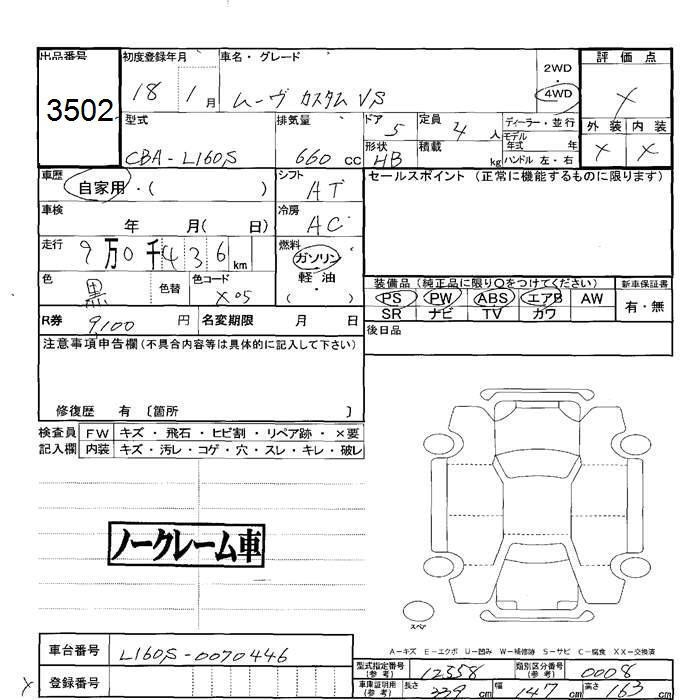 出品番号
3502
初度登録年月
18 1 月
車名・グレード
ムーヴ カスタム VS
2WD
4WD
評価点
X
外装 内装
X X
型式
CBA-L160S
排気量
660 cc
ドア 5
定員 4 人
ディーラー・並行
モデル
年式 年
形状 HB
積載 kg
ハンドル 左・右
車歴
自家用・( )
シフト
AT
セールスポイント (正常に機能するものに限ります)
車検
年 月( 日)
冷房
AC
走行
9万0千436 km
燃料
ガソリン
軽・油
( )
色
黒
色替
色コード
X05
装備品 (純正品に限り○をつけてください)
新車保証書
PS PW ABS エアB AW
SR ナビ TV カワ
有・無
R券 9,100 円
名変期限 月 日
後日品
注意事項申告欄(不具合内容等は具体的に記入して下さい)
修復歴 有 〔箇所 〕
検査員
記入欄
FW キズ・飛石・ヒビ割・リペア跡・×要
内装 キズ・汚レ・コゲ・穴・スレ・キレ・破レ
ノークレーム車
スペア
A-キズ E-エクボ U-凹み W-補修跡 S-サビ C-腐食 XX-交換済
車台番号 L160S-0070446
登録番号
型式指定番号
(参考)
12558
類別区分番号
(参考)
0008
車庫証明用
(参考)
長さ 339 cm 幅 147 cm 高さ 163 cm